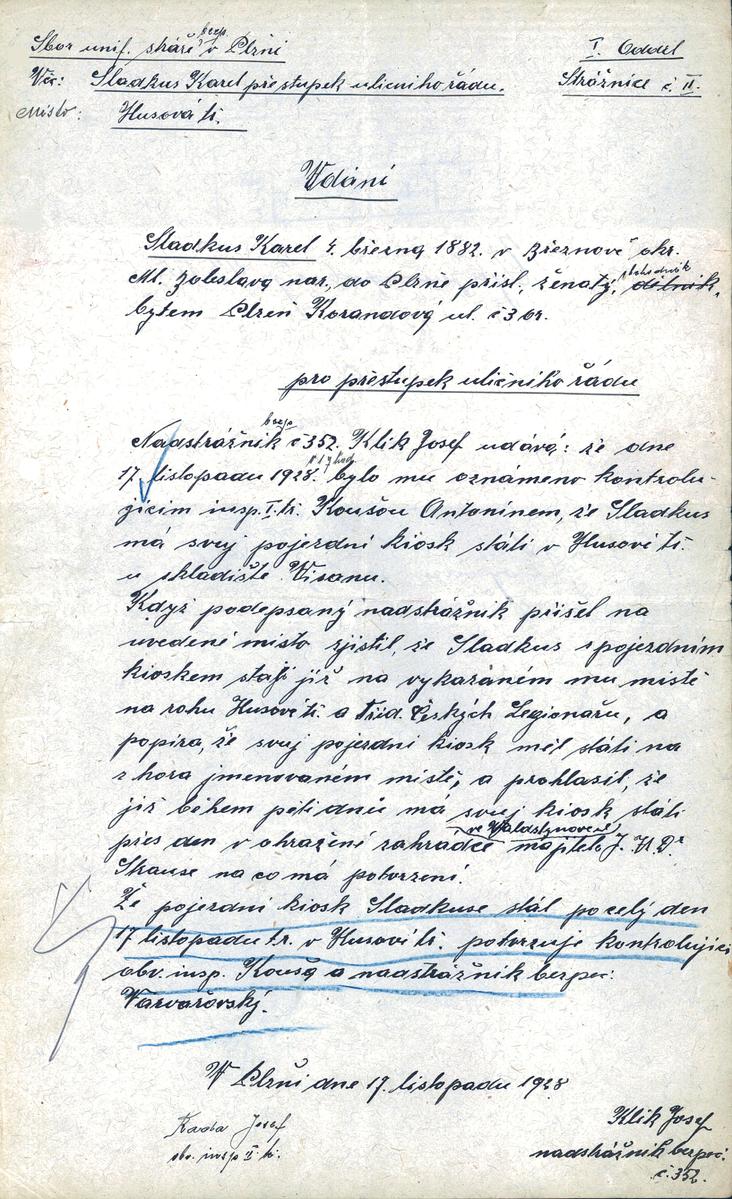 Sbor unif. stráže bezp. v Plzni
I. Odděl
Věc: Sladkus Karel přestupek uličního řádu.
Strážnice č. II.
Místo: Husova tř.
Udání
Sladkus Karel 4. března 1882. v Březnové okr.
Ml. Boleslava nar., do Plzně přísl., ženatý, obchodník dělník,
bytem Plzeň Korandova ul. č 3 or.
pro přestupek uličního řádu
Nadstrážník bezp. č 352. Klik Josef udává: že dne
17. listopadu 1928. v 17 hod. bylo mu oznámeno kontrolu-
jícím insp. I. tř. Koušou Antonínem, že Sladkus
má svuj pojezdní kiosk státi v Husově tř.
u skladiště Visanu.
Když podepsaný nadstrážník přišel na
uvedené místo zjistil, že Sladkus s pojezdním
kioskem stojí již na vykázaném mu místě
na rohu Husově tř. a Tříd. Českých Legionařu, a
popíra, že svuj pojezdní kiosk měl státi na
zhora jmenovaném místě, a prohlasil, že
již během pěti dnů má svuj kiosk státi
přes den v ohražení zahradce ve Waldstynově ul. majitele J. U. Dr
Skause na co má potvrzení.
Že pojezdní kiosk Sladkuse stál po celý den
17 listopadu t.r. v Husově tř. potvrzuje kontrolující
obv. insp. Kouša a nadstrážník bezpeč:
Varvařovský.
V Plzni dne 17. listopadu 1928
Kada Josef
obv. insp II. tř.
Klik Josef
nadstrážník bezpeč.
č. 352.